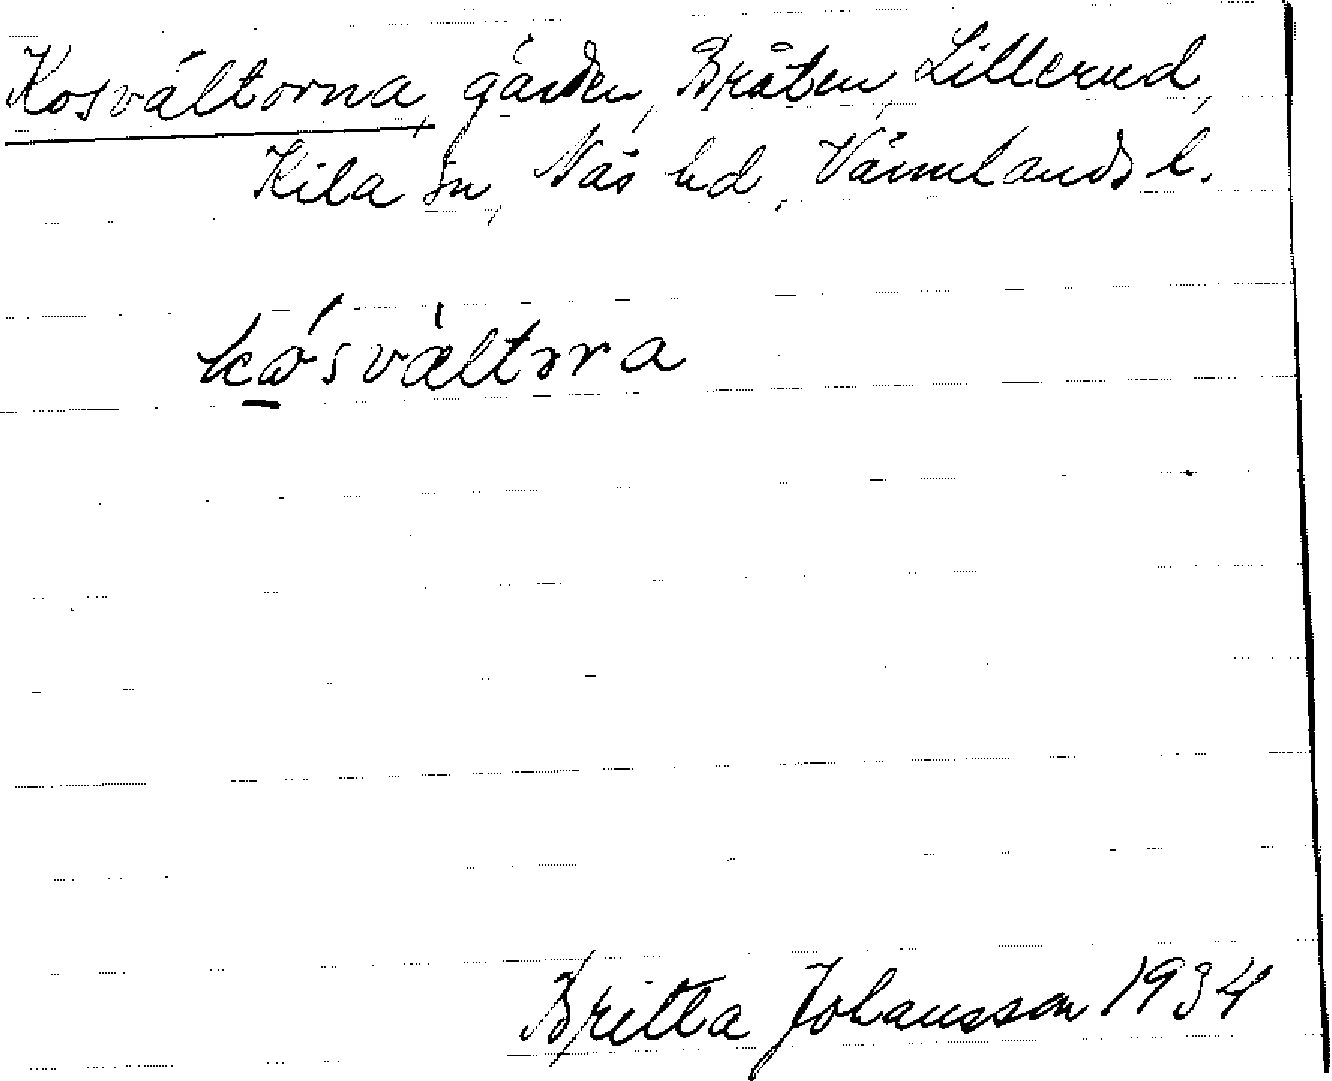 Kosvältorna, gärden, Bråten, Lillerud,
Kila sn, Näs hd, Värmlands l.
Britta Johansson 1934